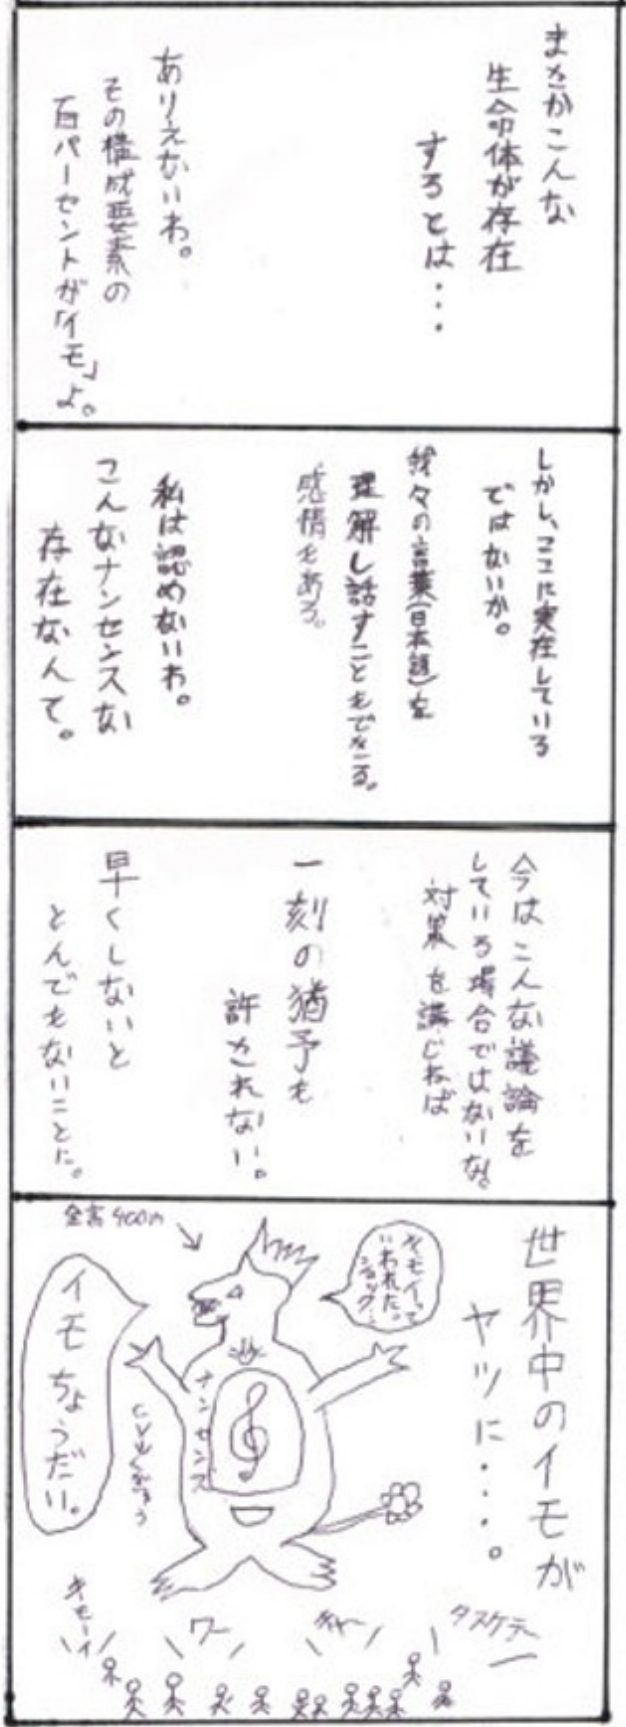 まさかこんな
生命体が存在
するとは・・・
ありえないわ。
その構成要素の
百パーセントが「イモ」よ。
しかし、ここに実在している
ではないか。
我々の言葉(日本語)を
理解し話すこともできる。
感情もある。
私は認めないわ。
こんなナンセンスな
存在なんて。
今はこんな議論を
している場合ではないな。
対策を講じねば
一刻の猶予も
許されない。
早くしないと
とんでもないことに。
世界中のイモが
ヤツに・・・・。
キモイって
いわれた。
ショック…
全高400m
イモちょうだい。
ナンセンス
キモーイ
ワー
キャー
タスケテー